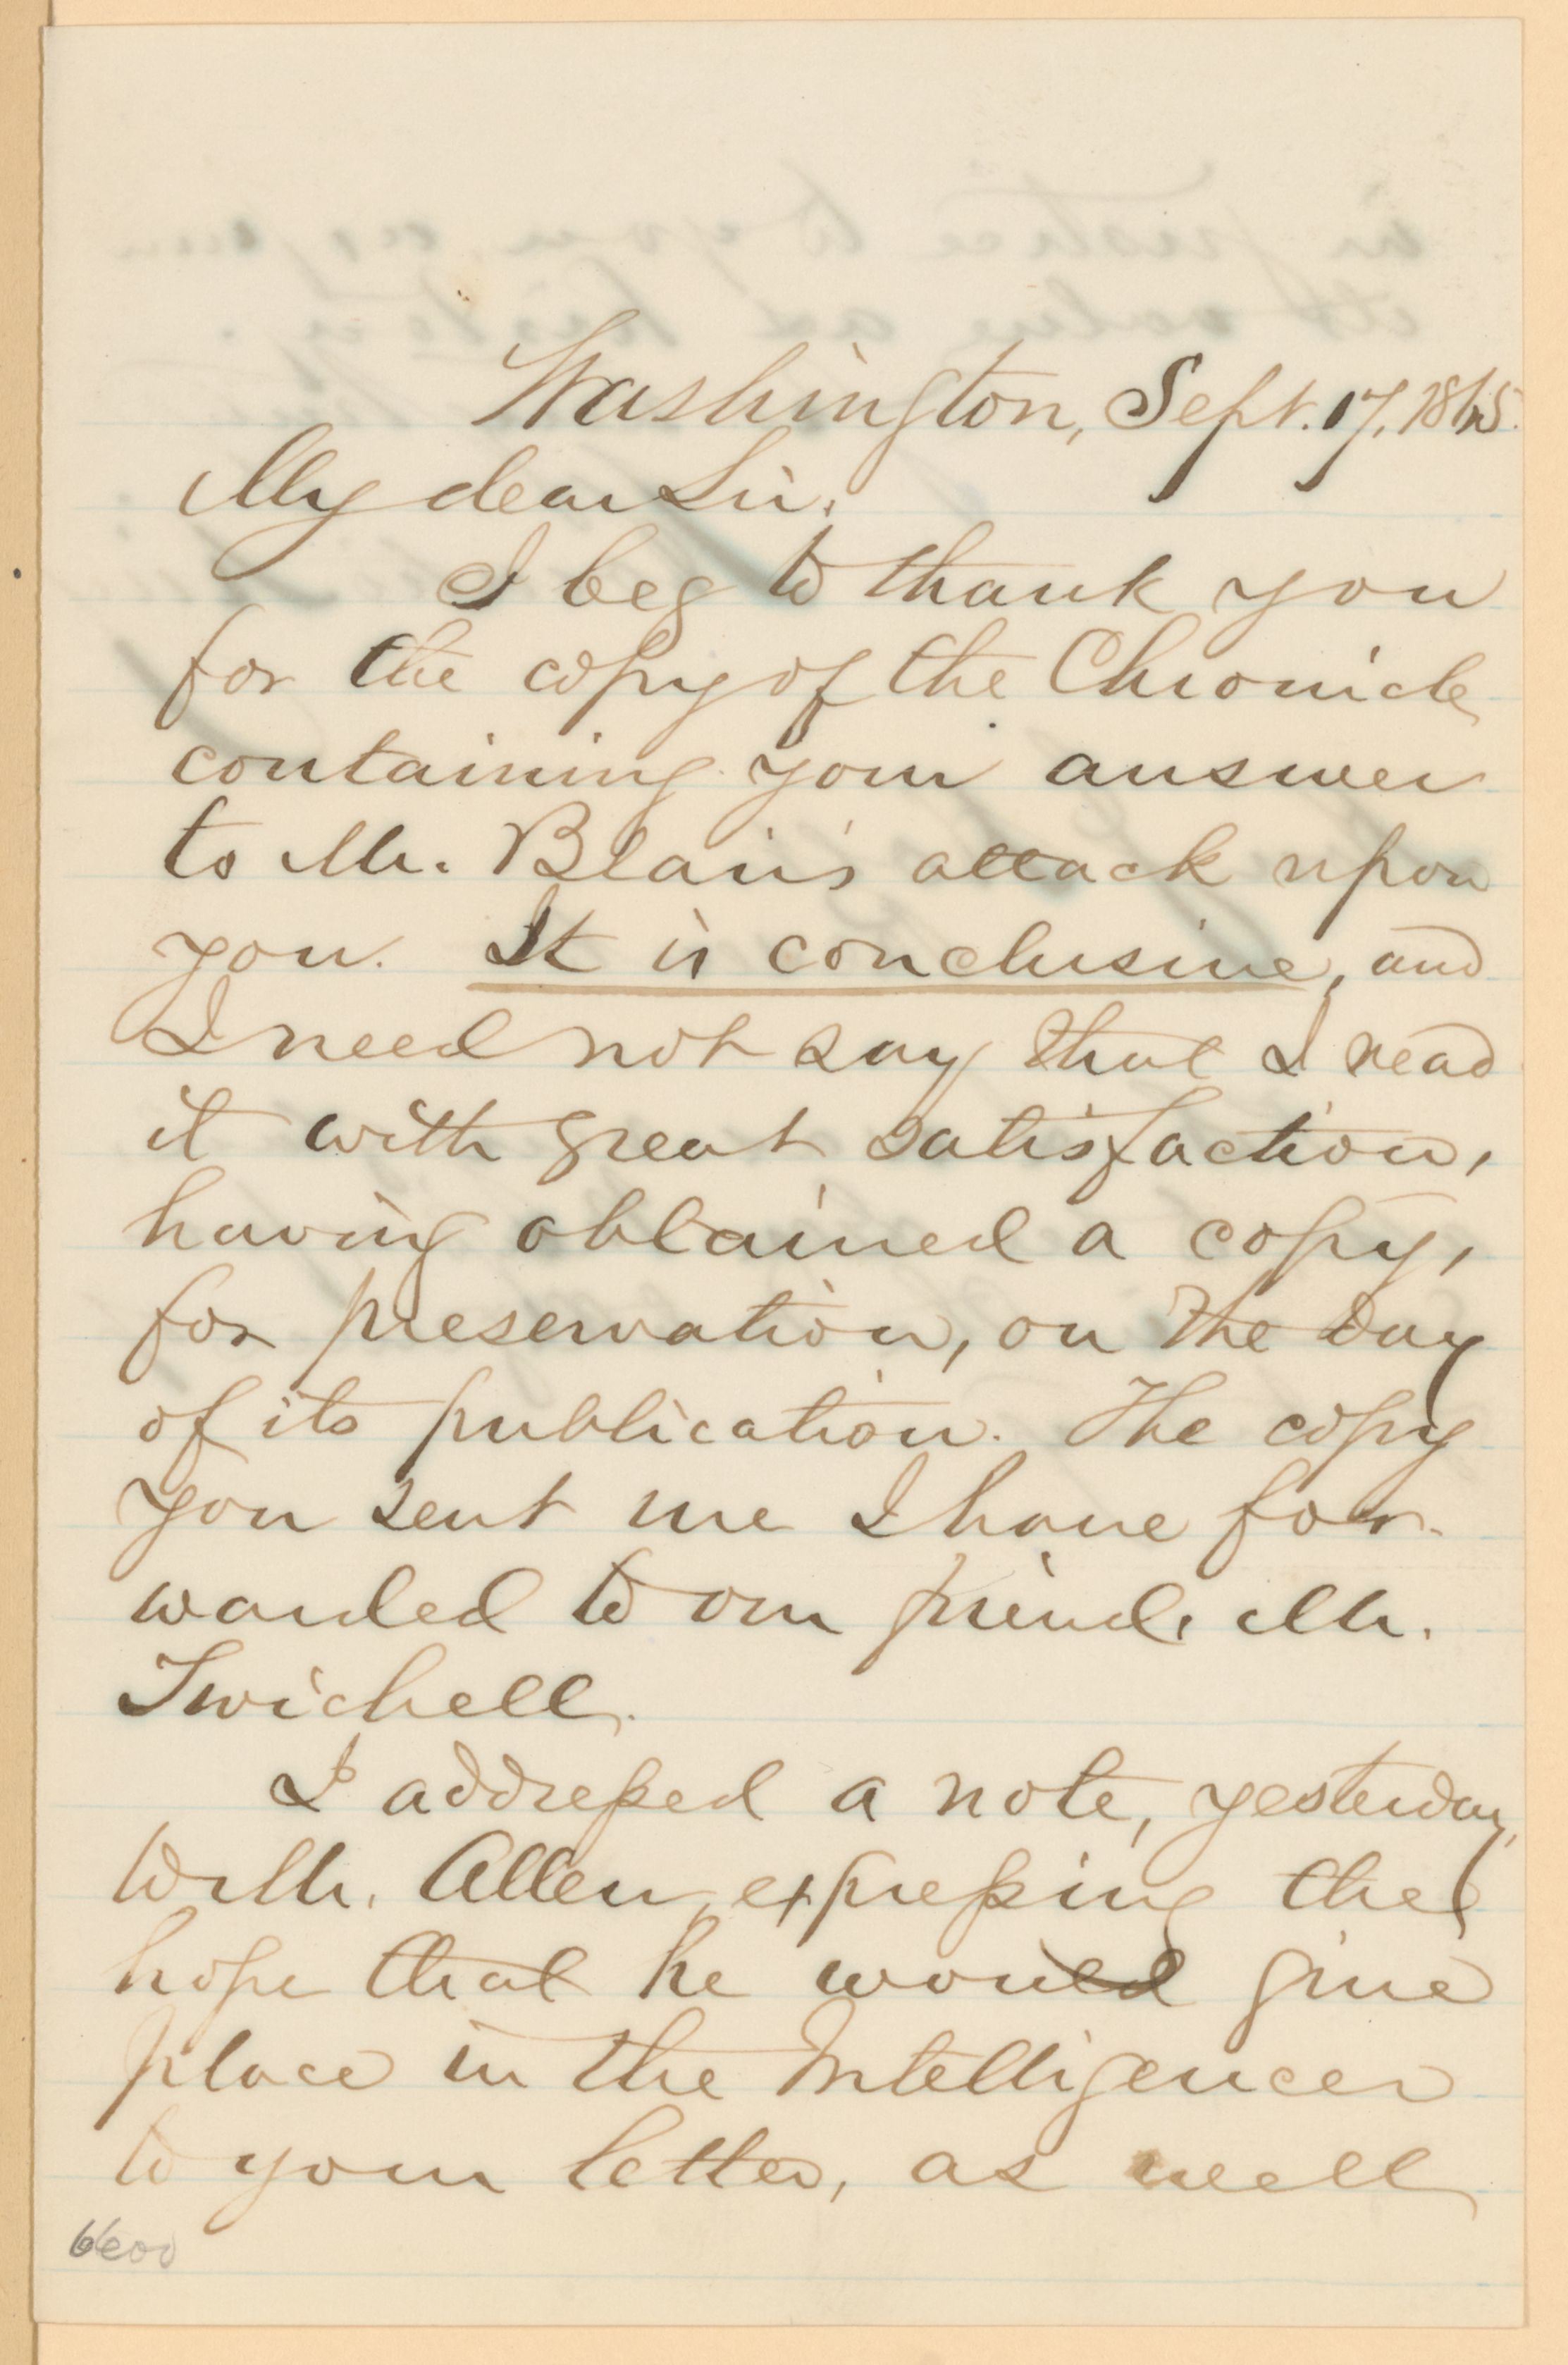 Washington, Sept. 17, 1865.
My dear Sir:
I beg to thank you
for the copy of the Chronicle
containing your answer
to Mr. Blair's attack upon
you. It is conclusive, and
I need not say that I read
it with great satisfaction,
having obtained a copy,
for preservation, on the day
of its publication. The copy
you sent me I have for-
warded to our friend, Mr.
Twichell.
I addressed a note, yesterday,
to Mr. Allen, expressing the
hope that he would give
place in the Intelligencer
to your letter, as well